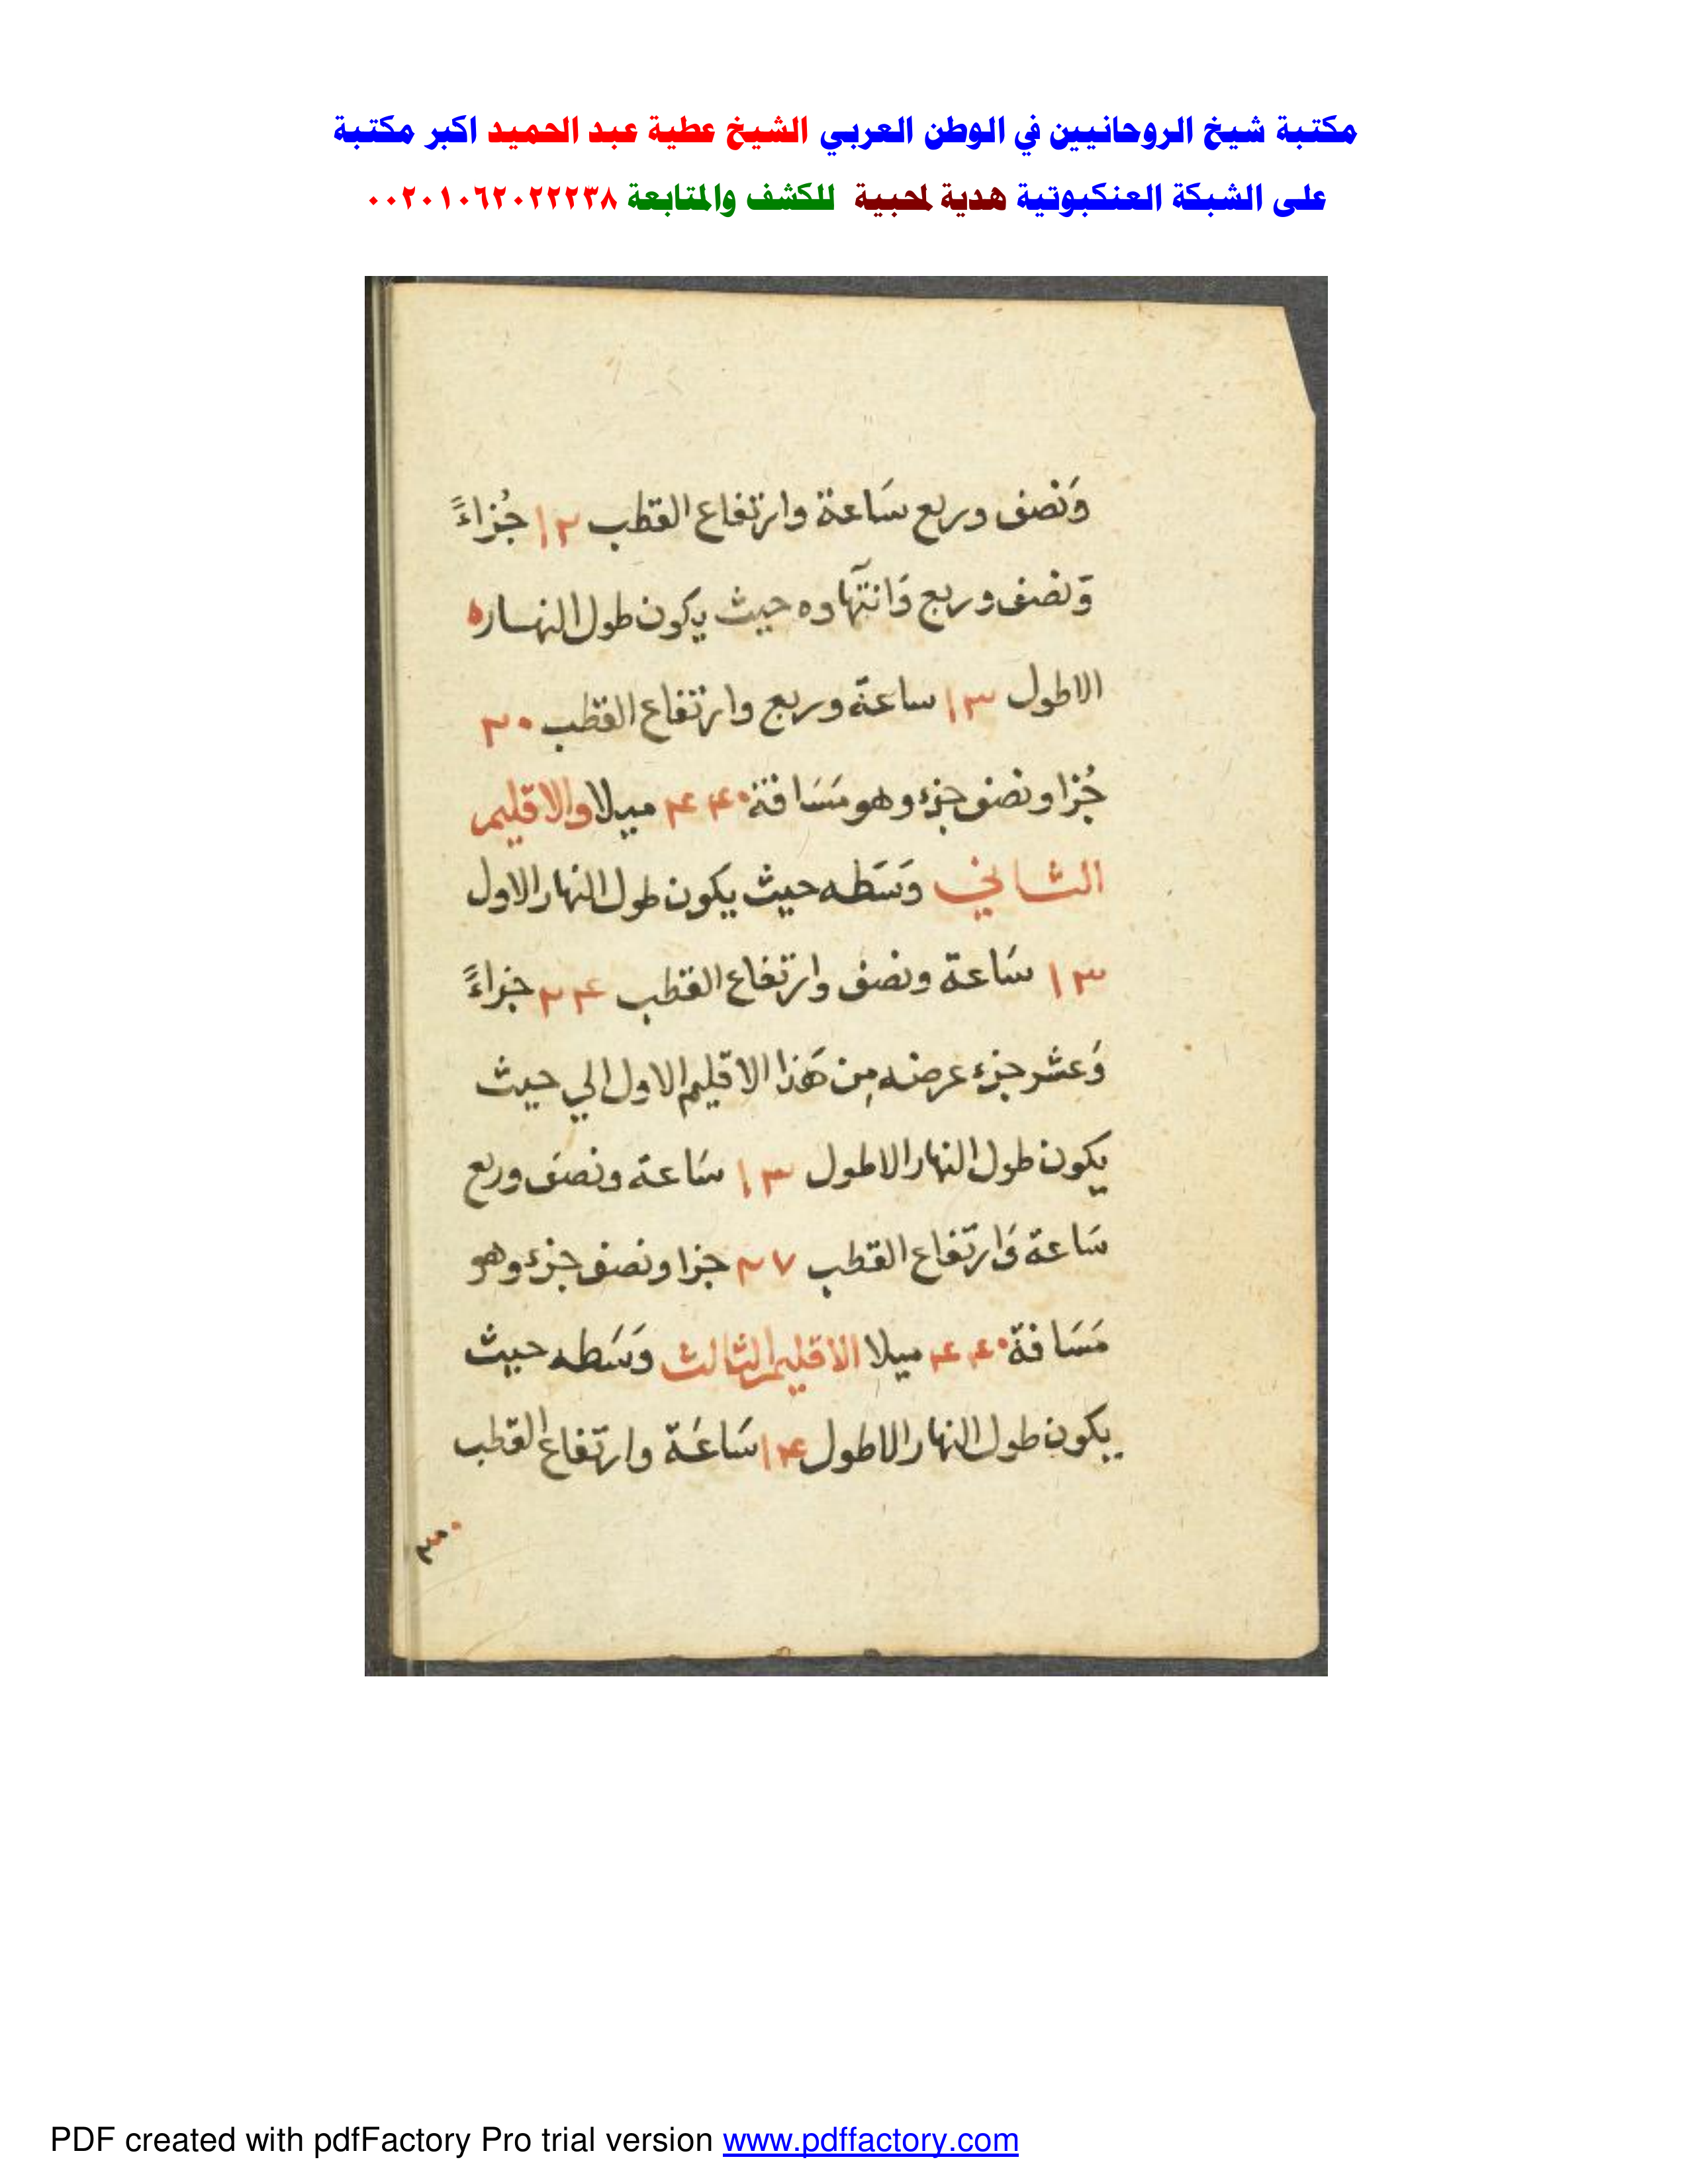 مكتبة شيخ الروحانيين في الوطن العربي الشيخ عطية عبد الحميد اكبر مكتبة
على الشبكة العنكبوتية هدية لمحبية للكشف والمتابعة ٠٠٢٠١٠٦٢٠٢٢٢٣٨
وَنصف وربع سَاعة وارتفاع القطب ١٢ جُزاءً
وَنصف وربع وَانتهآوه حيث يكون طول النهاره
الاطول ١٣ ساعة وربع وارتفاع القطب ٢٠
جُزا ونصف جزء وهو مَسَافة ٤٤٠ ميلا والاقليم
الثاني وَسَطه حيث يكون طول النهار الاول
١٣ سَاعة ونصف وارتفاع القطب ٢٤ جزاءً
وَعشر جزء عرضه مِن هَذا الاقليم الاول الي حيث
يكون طول النهار الاطول ١٣ سَاعة ونصف وربع
سَاعة وَارتفاع القطب ٢٧ جزا ونصف جزء وهو
مَسَافة ٤٤٠ ميلا الاقليم الثالث وَسَطه حيث
يكون طول النهار الاطول ١٤ سَاعَة وارتفاع القطب
PDF created with pdfFactory Pro trial version www.pdffactory.com